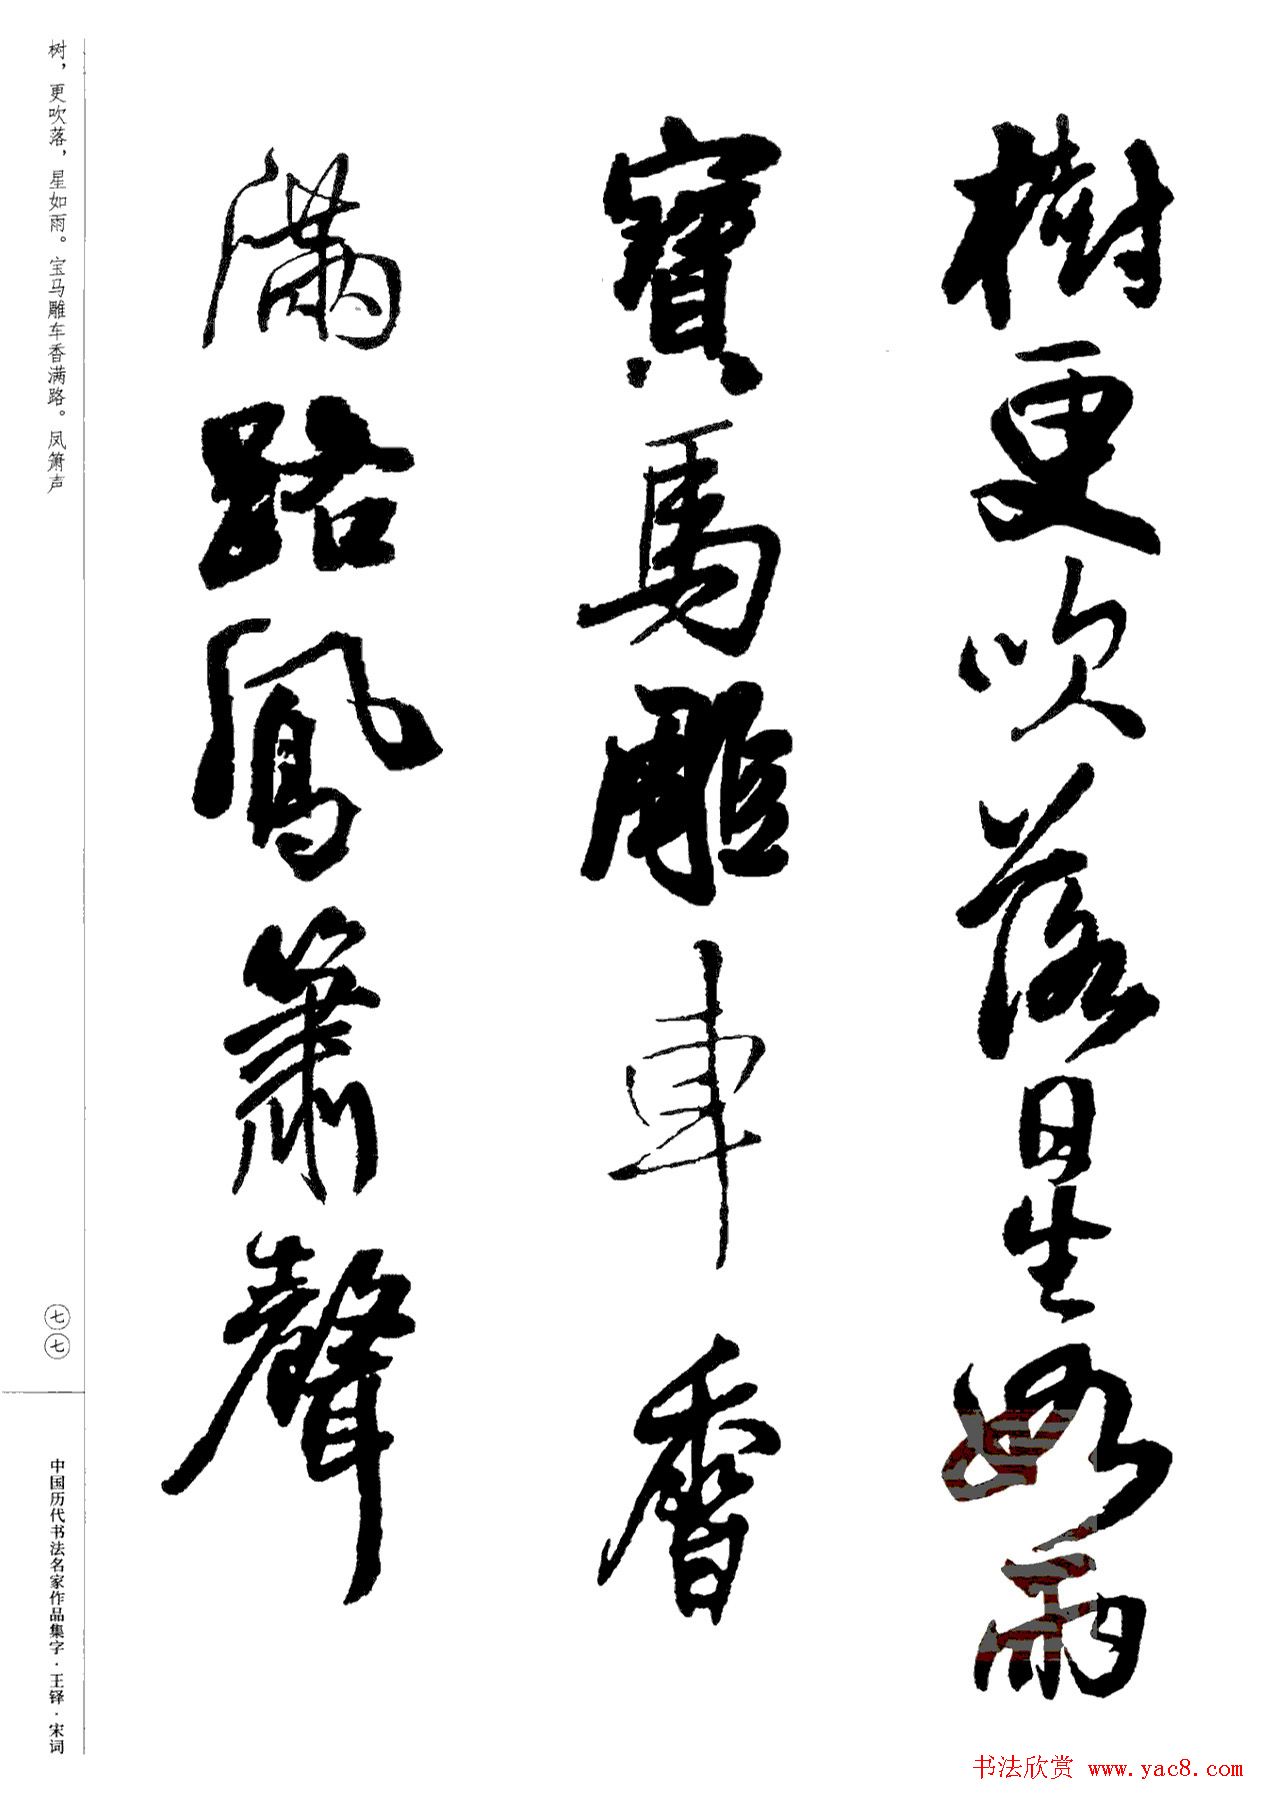 樹更吹落星如雨
寶馬雕車香
滿路鳳簫聲
树，更吹落，星如雨。宝马雕车香满路。凤箫声
七七
中国历代书法名家作品集字·王铎·宋词
书法欣赏 www.yac8.com